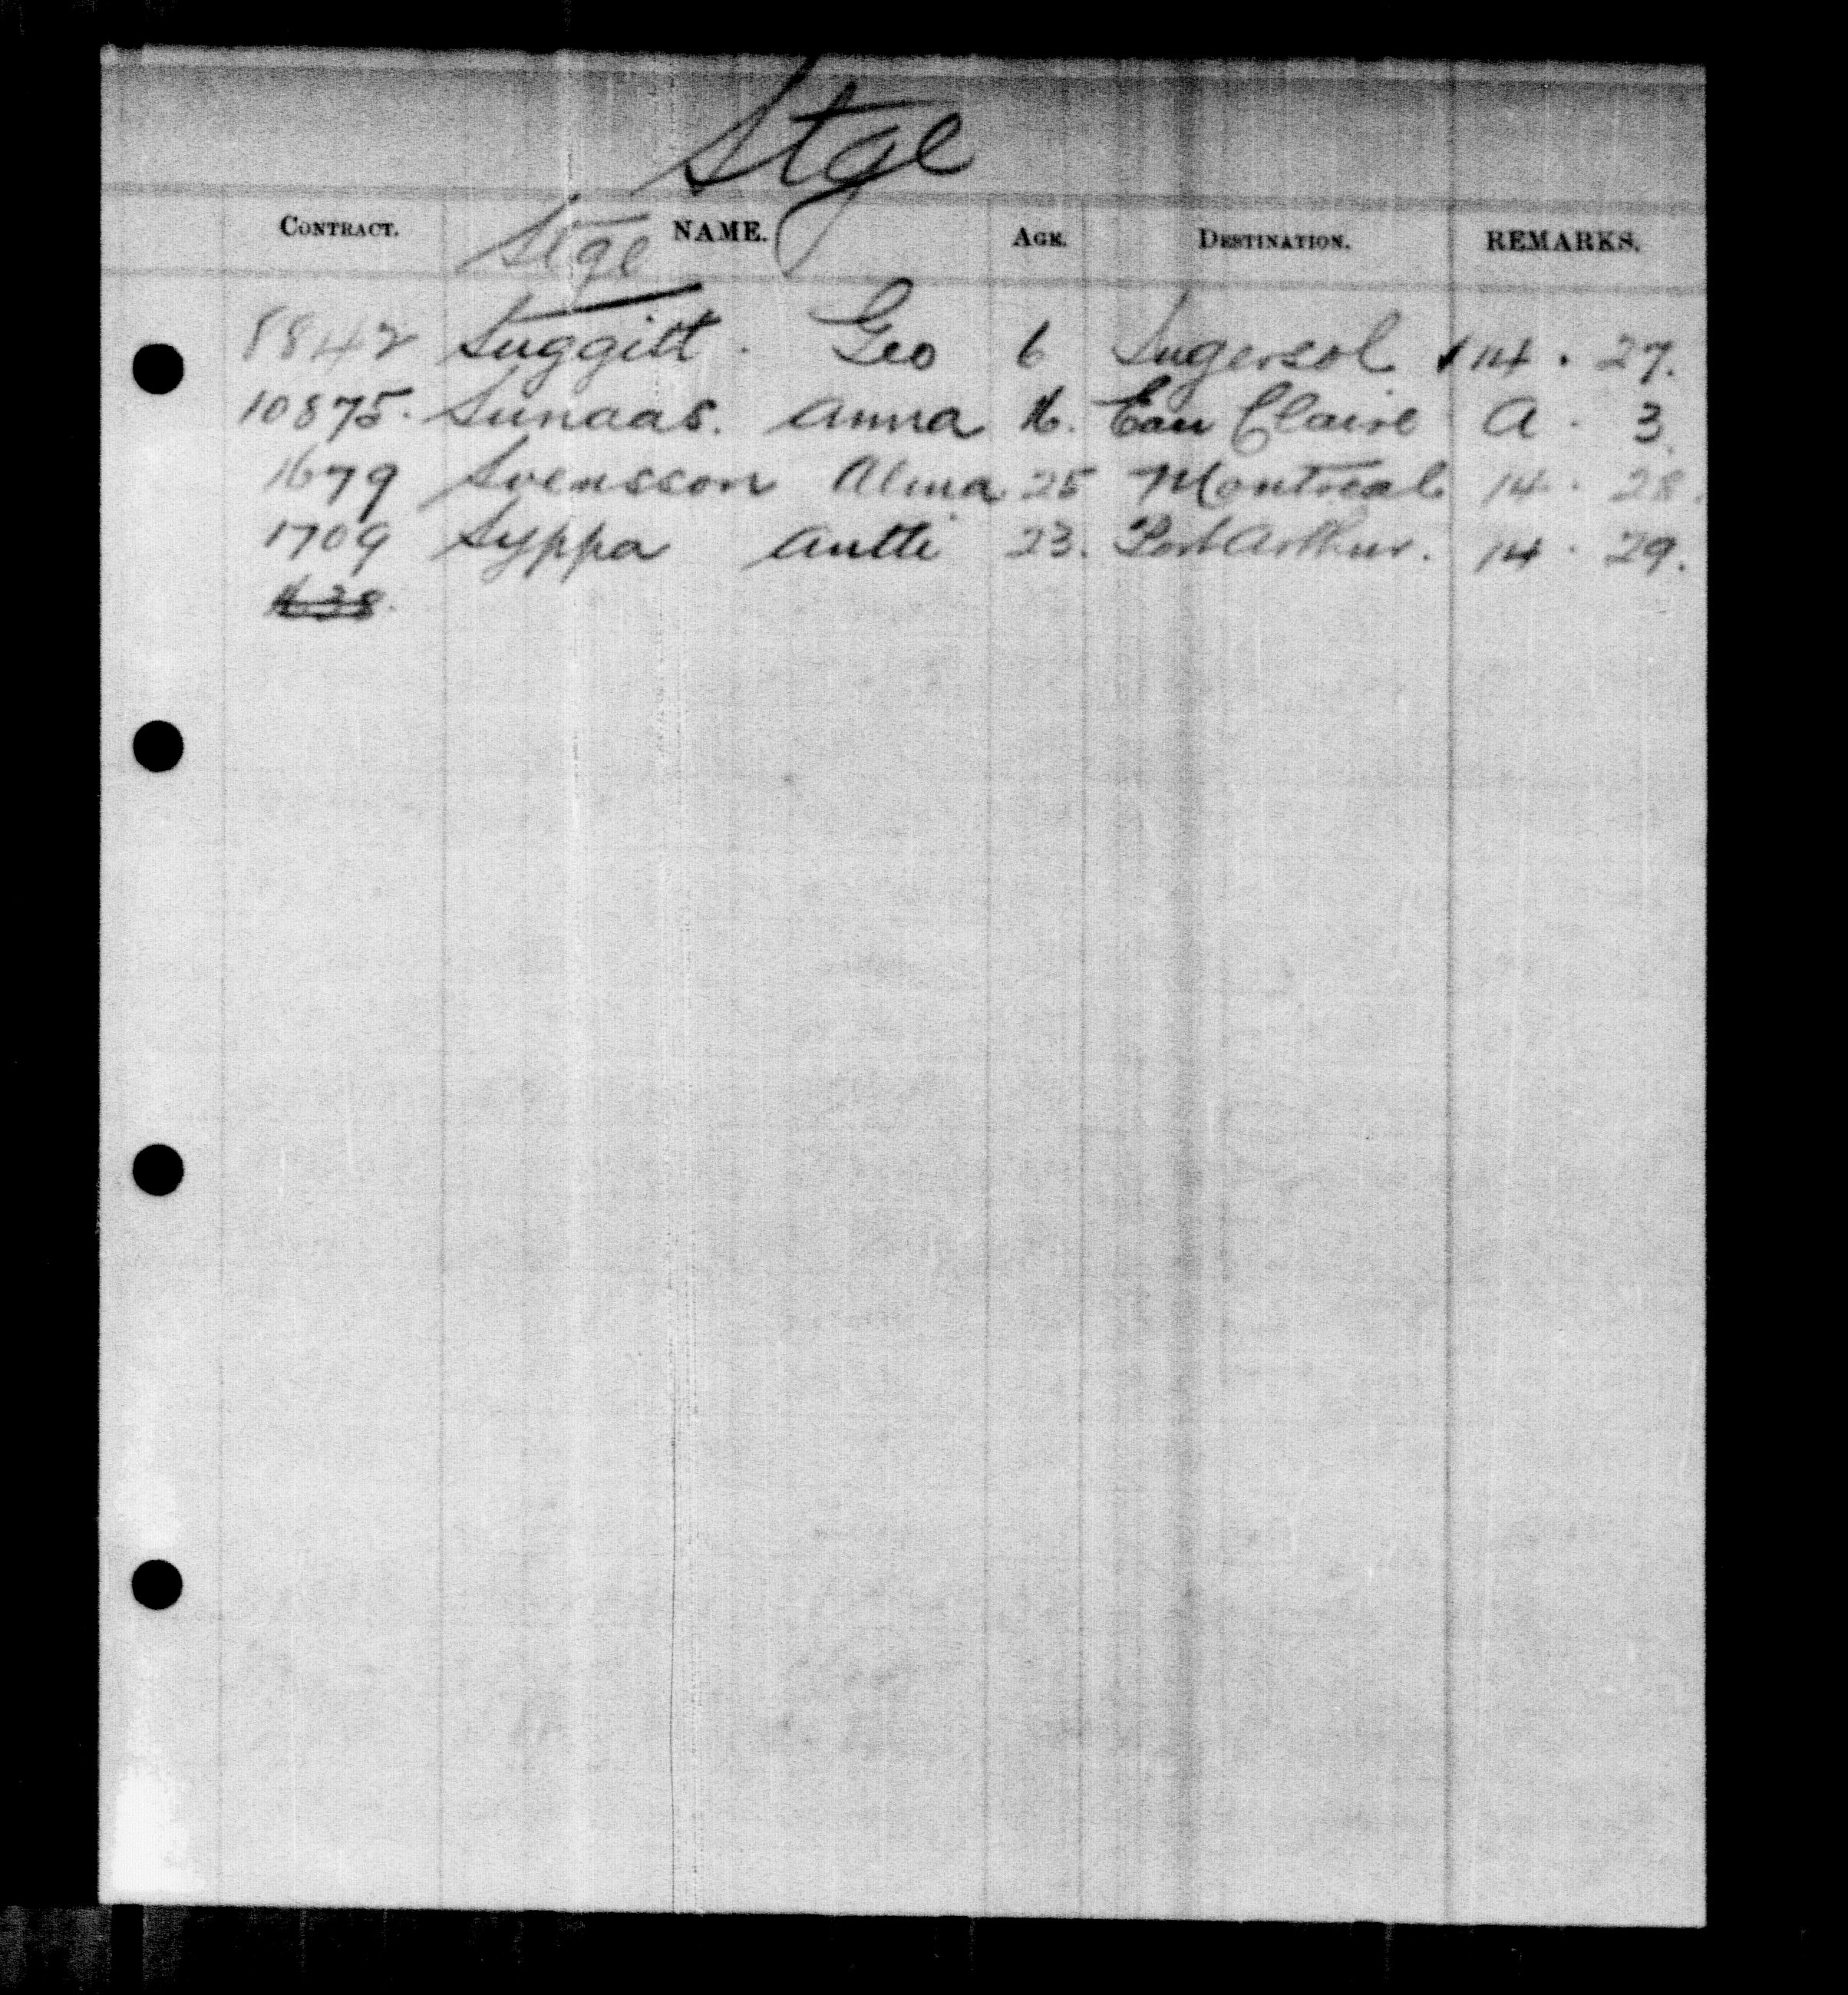 Stge
CONTRACT. NAME. AGE. DESTINATION. REMARKS.
Stge
8842 Suggitt. Geo 6 Ingersol 14. 27.
10875. Sunaas. Anna 16. Eau Claire A. 3.
1679 Svensson Alma 25 Montreal 14. 28.
1709 Syppa Antti 23. Port Arthur. 14. 29.